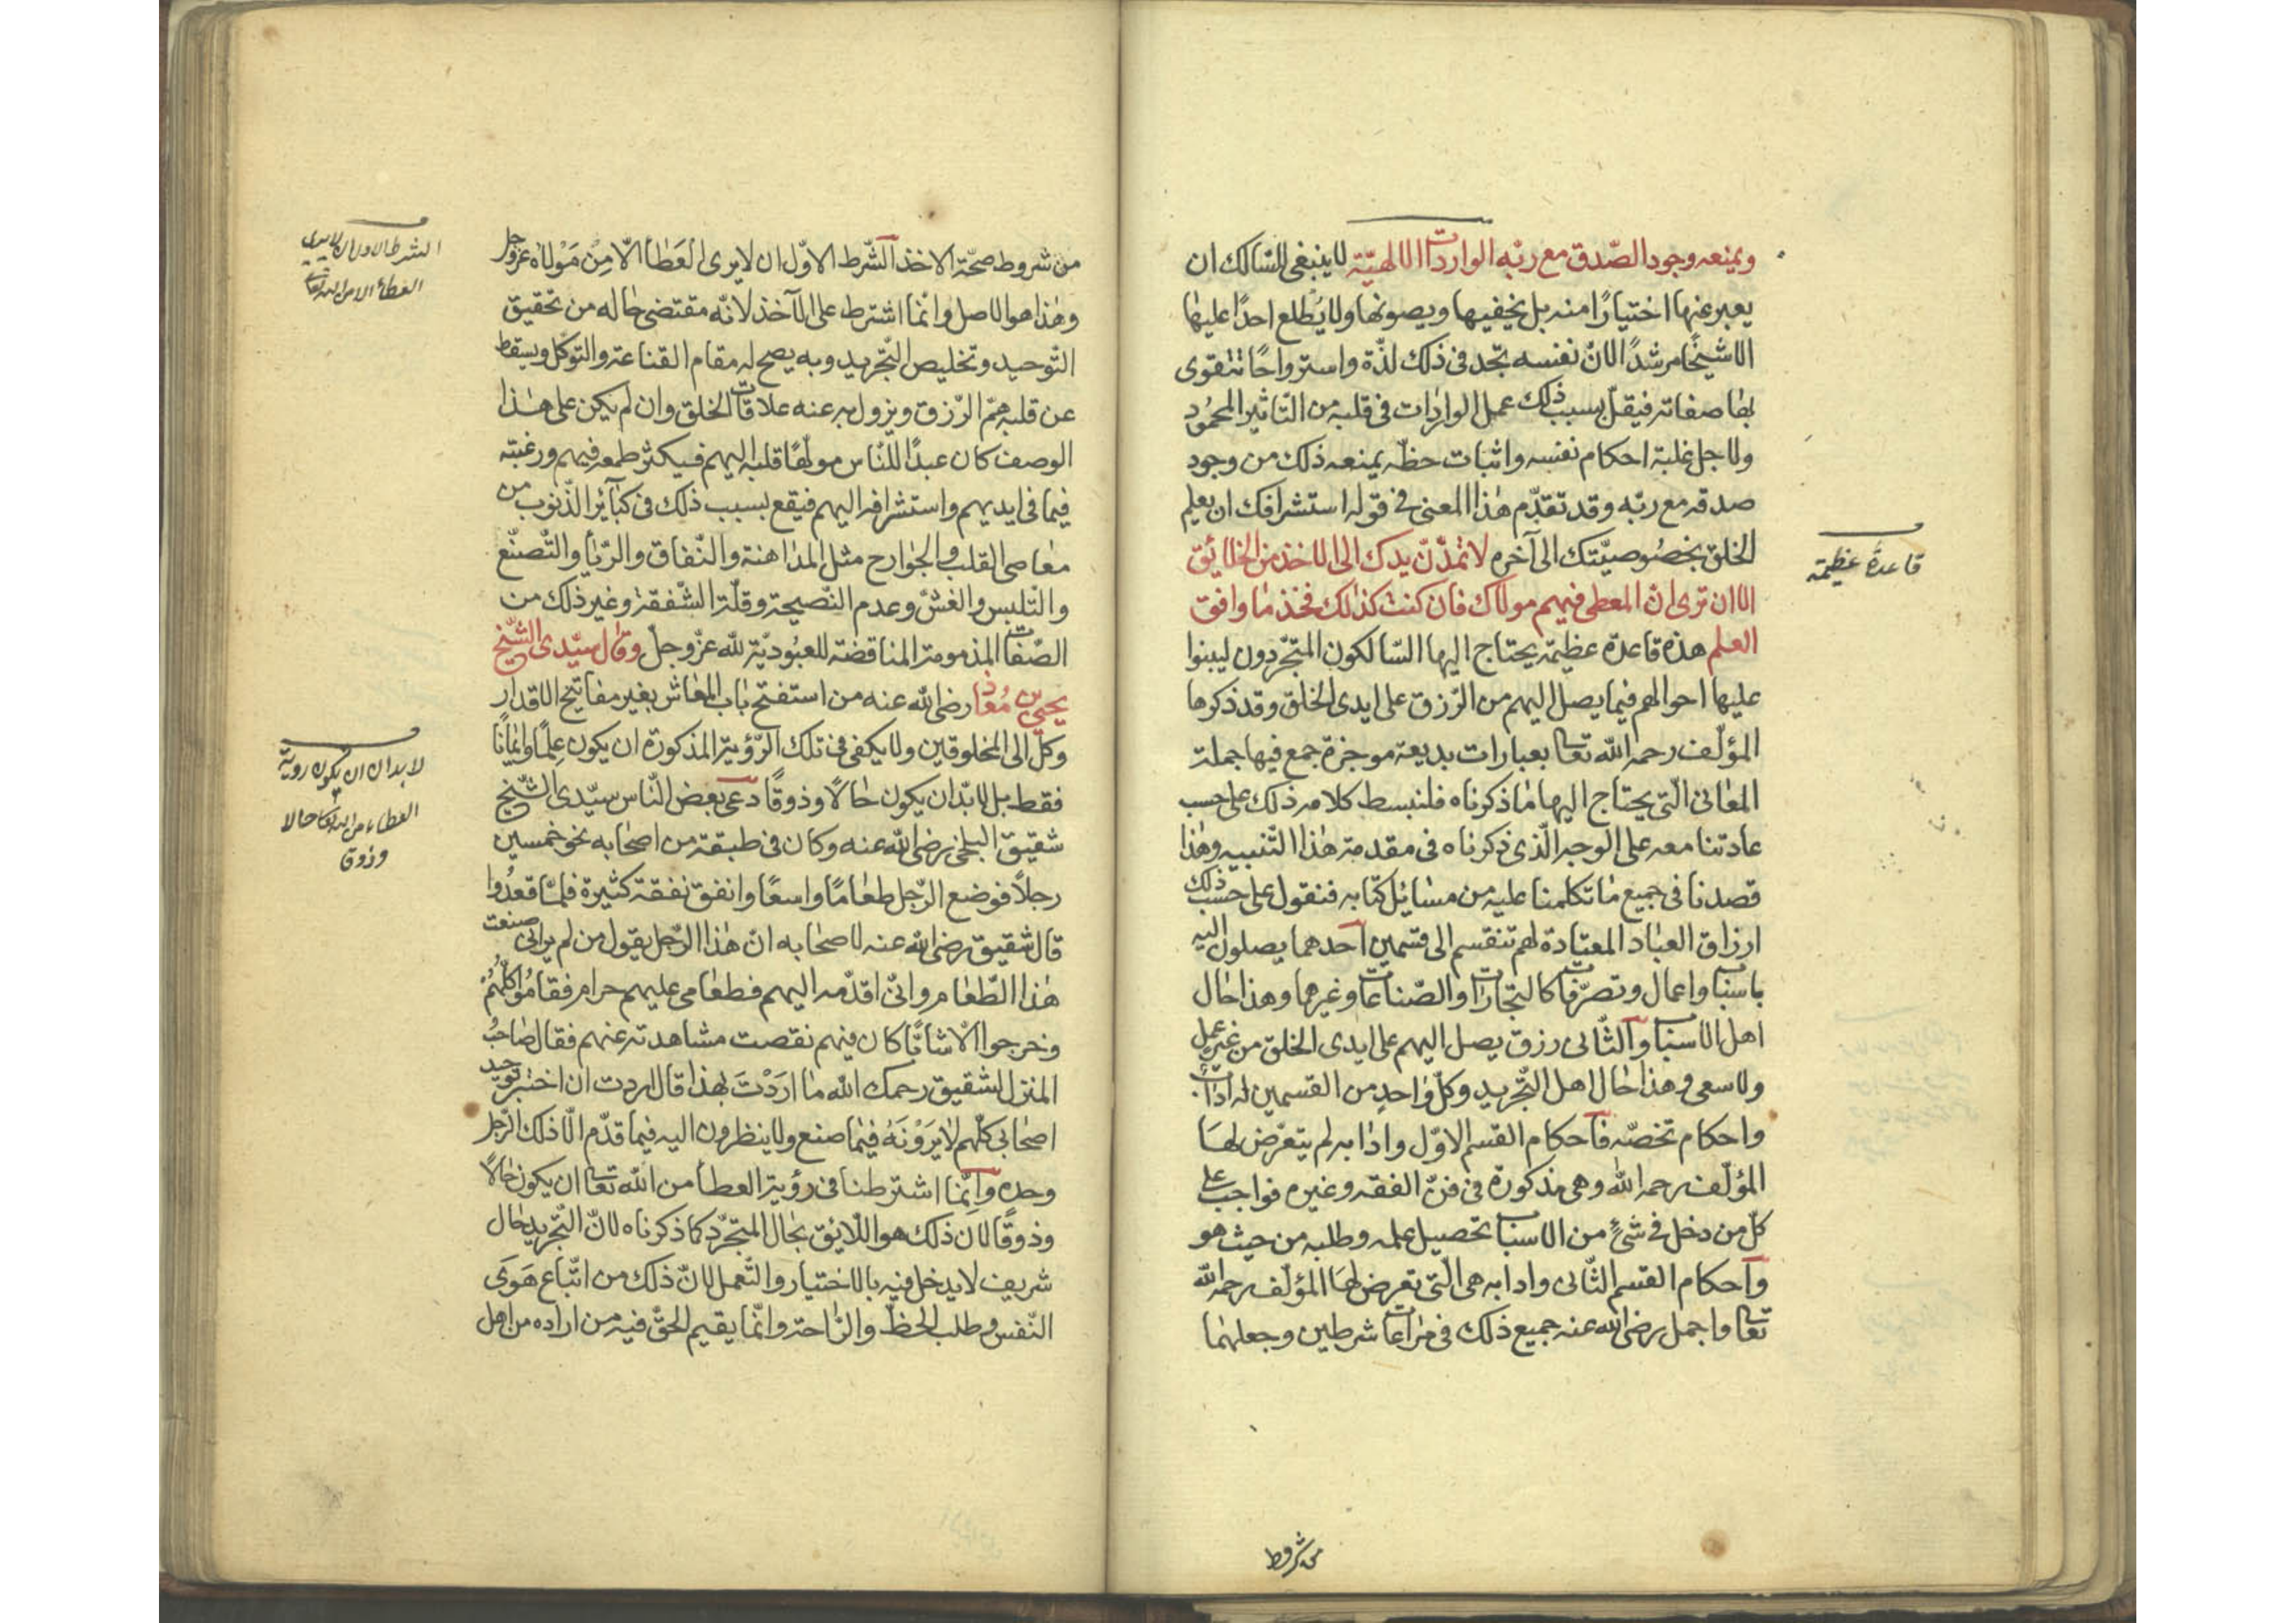 ويمنعه وجود الصّدق مع ربّه الواردات الالهيّة لاينبغى للسّالك ان
يعبر عنها اختيارًا منه بل يخفيها ويصونها ولا يُطلع احدًا عليها
الا شيخًا مرشدًا لانّ نفسه تجد فى ذلك لذّة واسترواحًا تتقوى
بها صفاته فيقلّ بسبب ذلك عمل الواردات فى قلبه من التّاثير المحمُود
ولاجل غلبة احكام نفسه واثبات حظّه يمنعه ذلك من وجود
صدقه مع ربّه وقد تقدّم هذا المعنى فى قوله استشرافك ان يعلم
الخلق بخصُوصيّتك الى آخره لا تمدّنّ يدك الى الاخذ من الخلائق
الا ان ترى انّ المعطى فيهم مولاك فان كنت كذلك فخذ ما وافق
العلم هذه قاعدة عظيمة يحتاج اليها السّالكون المتجّردون ليبنوا
عليها احوالهم فيما يصل اليهم من الرّزق على ايدى الخلق وقد ذكرها
المؤلّف رحمه الله تعا بعبارات بديعة موجزة جمع فيها جملة
المعانى الّتى يحتاج اليها ما ذكرناه فلنبسط كلامه ذلك على حسب
عادتنا معه على الوجه الّذى ذكرناه فى مقدمة هذا التّنبيه وهذا
قصدنا فى جميع ما تكلمنا عليه من مسائل كتابه فنقول على حسب ذلك
ارزاق العباد المعتادة لهم تنقسم الى قسمين احدهما يصلون اليه
باسباب واعمال وتصرّفات كالتجّارات والصّناعات وغيرها وهذا حال
اهل الاسباب والثّانى رزق يصل اليهم على ايدى الخلق من غير عمل
ولا سعى وهذا حال اهل التّجريد وكلّ واحدٍ من القسمين له اداب
واحكام تخصّه فاحكام القسم الاوّل وادابه لم يتعرّض لها
المؤلّف رحمه الله وهى مذكورة فى فنّ الفقه وغيره فواجب على
كلّ من دخل فى شئ من الاسباب تحصيل علمه وطلبه من حيث هو
واحكام القسم الثّانى وادابه هى الّتى تعرض لها المؤلّف رحمه الله
تعا واجمل رضى الله عنه جميع ذلك فى مراعات شرطين وجعلهما
من شروط
قاعدة عظيمة
من شروط صحّة الاخذ الشّرط الاوّل ان لا يرى العَطاء الّا مِنْ مَوْلاه عزّوجل
وهذا هو الاصل وانّما اشترط على الآخذ لانّه مقتضى حاله من تحقيق
التّوحيد وتخليص التّجريد وبه يصح له مقام القناعة والتوكّل ويسقط
عن قلبه همّ الرّزق ويزول به عنه علاقات الخلق وان لم يكن على هذا
الوصف كان عبدًا للنّاس مولّهًا قلبه اليهم فيكثر طمعه فيهم ورغبته
فيما فى ايديهم واستشرافه اليهم فيقع بسبب ذلك فى كبآئر الذّنوب من
معاصى القلب والجوارح مثل المداهنة والنّفاق والرّياء والتّصنّع
والتّلبس والغشّ وعدم النّصيحة وقلّة الشّفقة وغير ذلك من
الصّفات المذمومة المناقضة للعبُوديّة لله عزّوجلّ وقال سيّدى الشّيخ
يحيى بن مُعاذ رضى الله عنه من استفتح باب المعاش بغير مفاتيح الاقدار
وكلّ الى المخلوقين ولا يكفى فى تلك الرّؤية المذكورة ان يكون عِلمًا وايمانًا
فقط بل لا بدّ ان يكون حالًا وذوقًا دعى بعض النّاس سيّدى الشّيخ
شقيق البلخى رضى الله عنه وكان فى طبقة من اصحابه نحو خمسين
رجلًا فوضع الرّجل طعامًا واسعًا وانفق نفقة كثيرة فلمّا قعدُوا
قال شقيق رضى الله عنه لاصحابه انّ هذا الرّجل يقول من لم يرانى صنعت
هذا الطّعام وانّى اقدّمه اليهم فطعامى عليهم حرام فقامُوا كلّهُمْ
وخرجوا الّا شابًّا كان فيهم نقصت مشاهدته عنهم فقال صاحبُ
المنزل لشقيق رحمك الله ما ارَدْتَ بهذا قال اردت ان اختبر توحيد
اصحابى كلّهم لا يَرَوْنَهُ فيما صنع ولا ينظرون اليه فيما قدّم الّا ذلك الرّجل
وحده وانّما اشترطنا فى رؤية العطاء من الله تعا ان يكون حالًا
وذوقًا لانّ ذلك هو اللّائق بحال المتجّرد كما ذكرناه لانّ التّجريد حال
شريف لا يدخل فيه بالاختيار والتّعمل لانّ ذلك من اتّباع هَوَى
النّفس وطلب الحظّ والرّاحة وانّما يقيم الحقّ فيه من اراده من اهل
الشرط الاول ان لا يرى
العطاء الا من الله تعا
لا بد ان يكون روية
العطاء من الله تعا حالا
وذوق